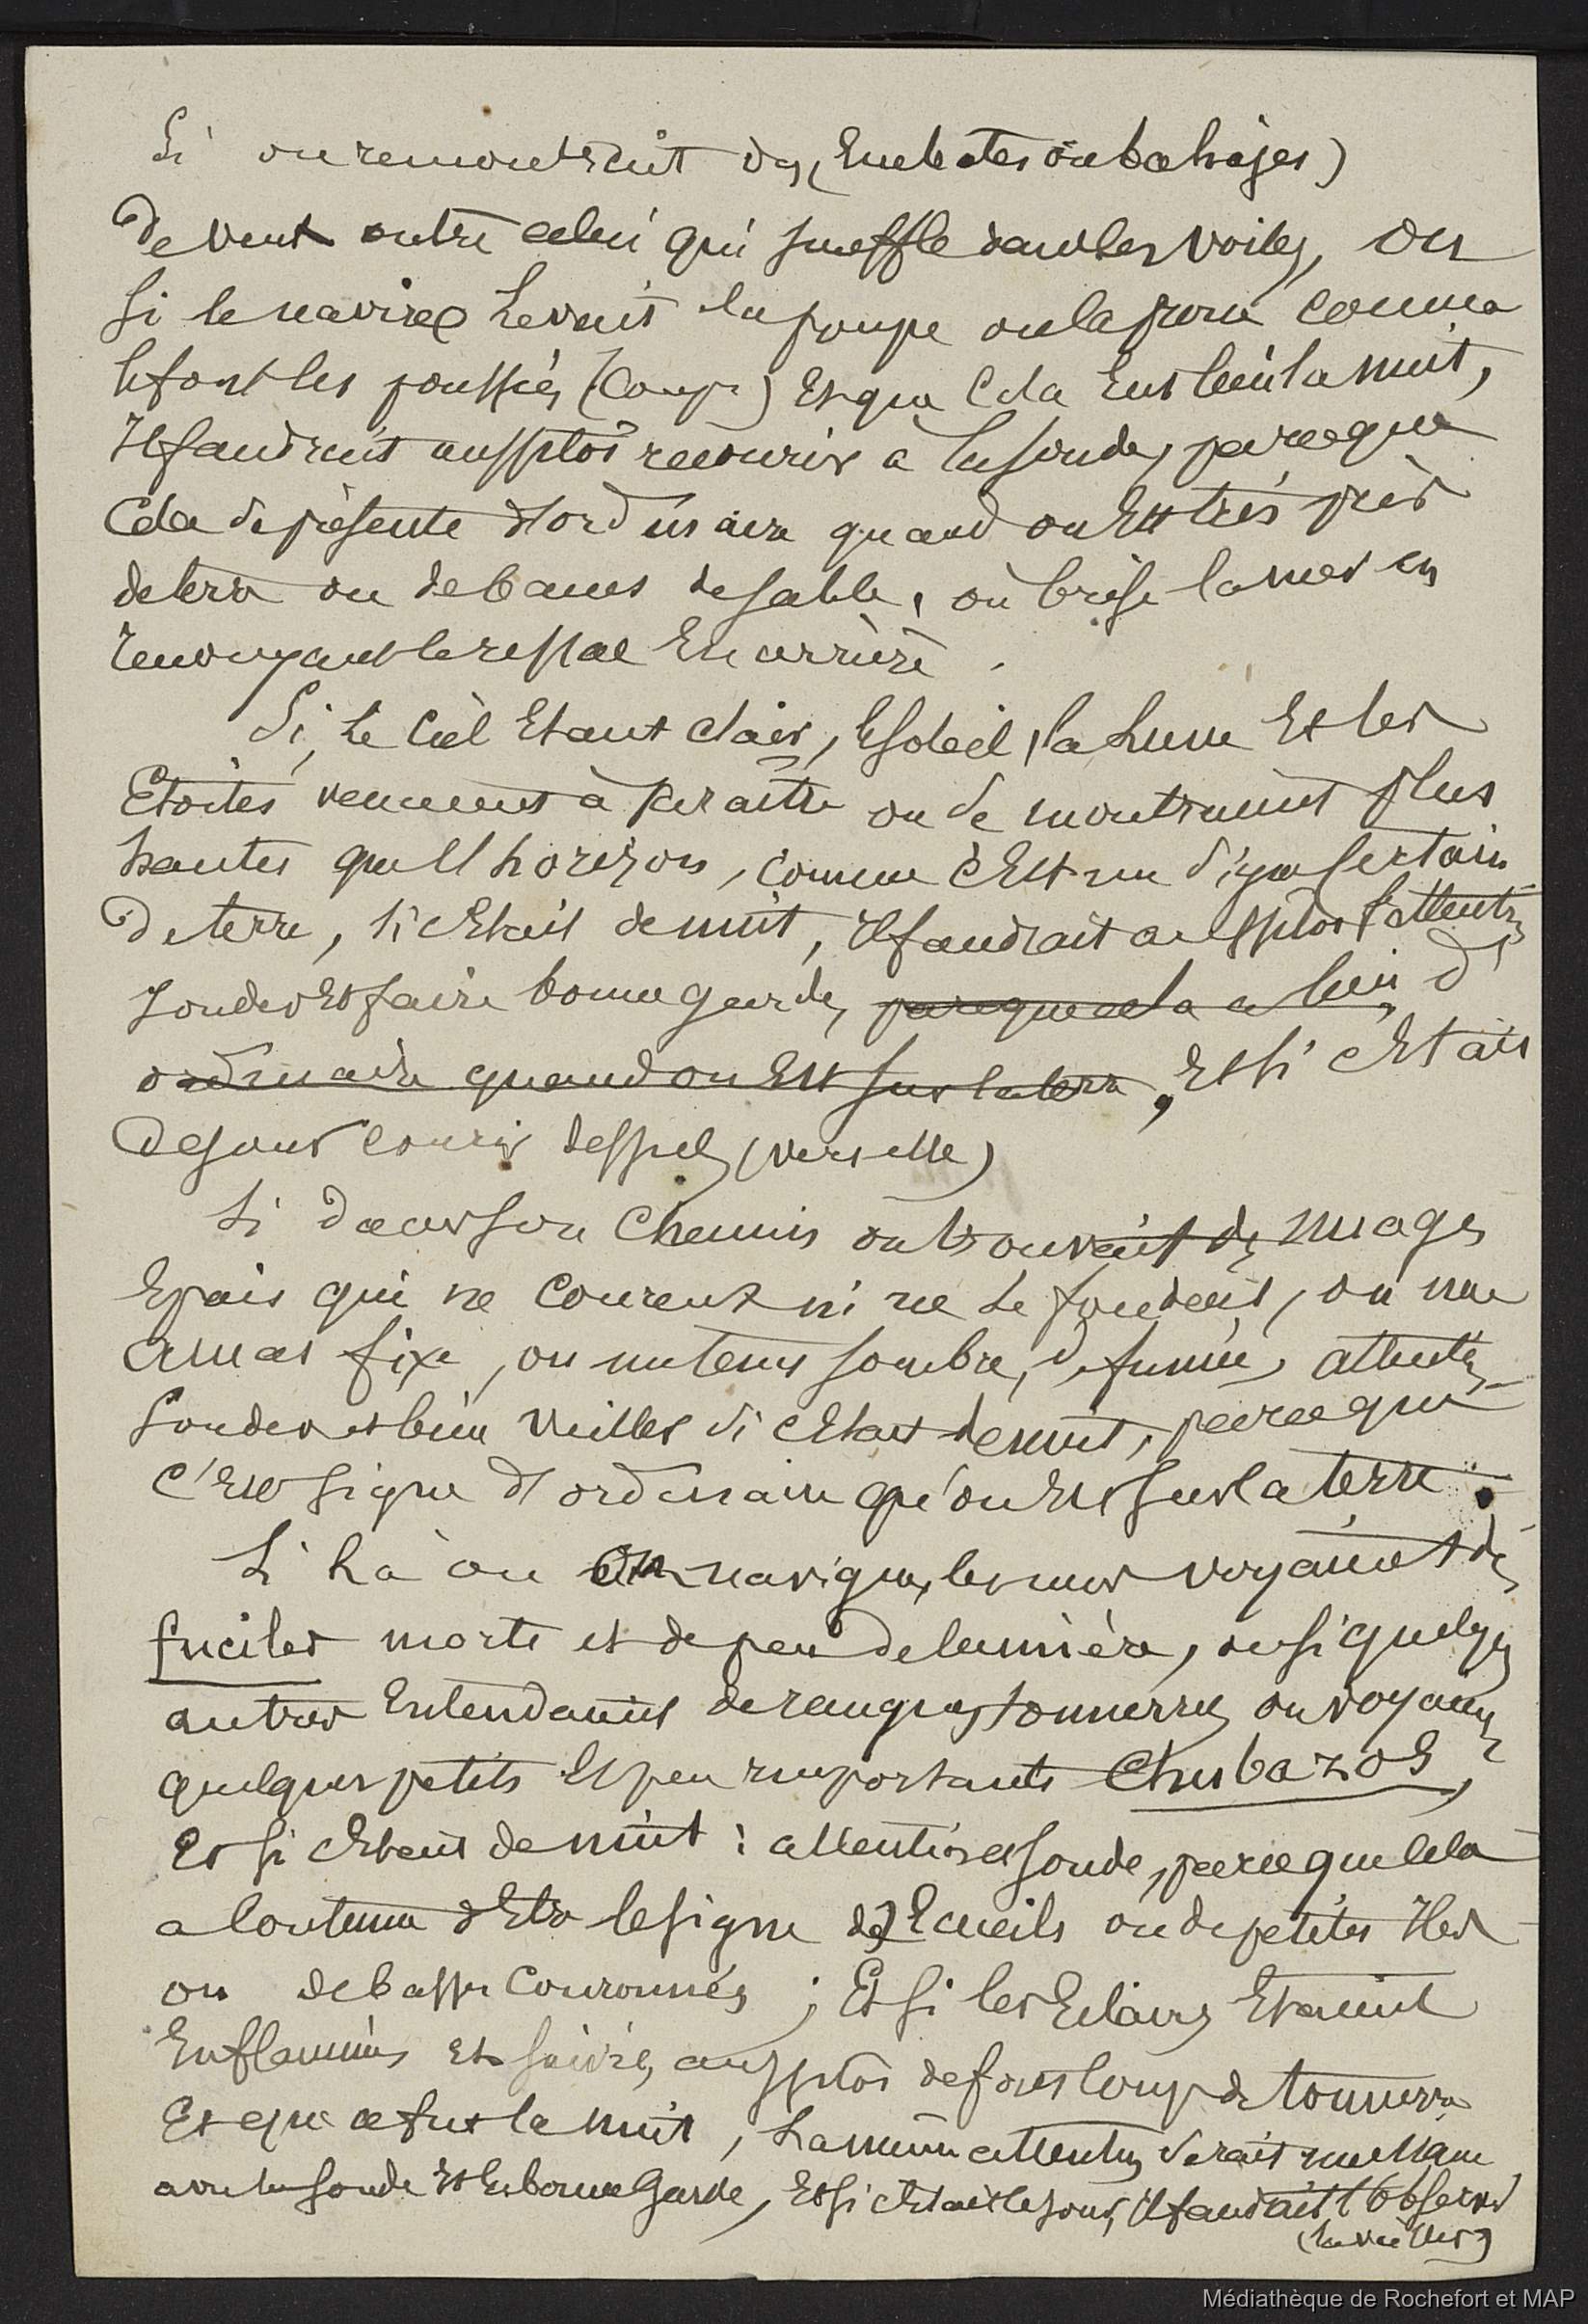 Si on rencontrait des (Embates ou balisages)
de vent outre celui qui souffle dans les voiles, ou
si le navire levait la poupe ou la proue comme
le font les poussées (Coups) et que cela eut lieu la nuit,
il faudrait aussitôt recourir à la sonde, parce que
cela se présente d'ordinaire quand on est très près
de terre ou de bancs de sable, où brise la mer en
renvoyant le ressac en arrière.
Si, le Ciel étant clair, le soleil, la lune et les
Etoiles venaient à paraître ou se montraient plus
hautes que l'horizon, comme c'est un signe certain
de terre, si c'était de nuit, il faudrait aussitôt attention
sonder et faire bonne garde, parce que cela a lieu d'
ordinaire quand on est sur la terre, et si c'était
de jour courir dessus (vers elle)
Si dans son chemin on trouvait des nuages
Epais qui ne courent ni ne se fondent, ou un
amas fixe, ou un temps sombre, de fumée, attention
sonder et bien veiller si c'était de nuit, parce que
c'est signe d'ordinaire qu'on est sur la terre.
Si là où on navigue, les uns voyaient des
fuciles morts et de peu de lumière, ou si quelques
autres entendaient de rauques tonnerres ou voyaient
quelques petits et peu importants Chubazos,
et si c'était de nuit : attention et sonde, parce que cela
a coutume d'être le signe des Ecueils ou de petites Iles
ou de basses couronnées ; Et si les Eclairs étaient
Enflammés et suivis, aussitôt de forts coups de tonnerre
Et que ce fut la nuit, la même attention serait nécessaire
avec la sonde et la bonne Garde, et si c'était le jour, il faudrait l'observer
(la veiller)
Médiathèque de Rochefort et MAP